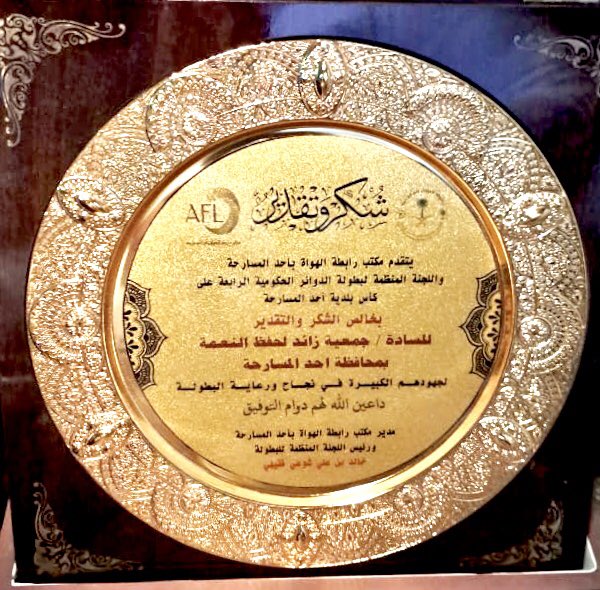 AFL
شكر وتقدير
يتقدم مكتب رابطة الهواة بأحد المسارحة
واللجنة المنظمة لبطولة الدوائر الحكومية الرابعة على
كأس بلدية أحد المسارحة
بخالص الشكر والتقدير
للسادة / جمعية زائد لحفظ النعمة
بمحافظة أحد المسارحة
لجهودهم الكبيرة في نجاح ورعاية البطولة
داعين الله لهم دوام التوفيق
مدير مكتب رابطة الهواة بأحد المسارحة
ورئيس اللجنة المنظمة للبطولة
خالد بن علي شوعي